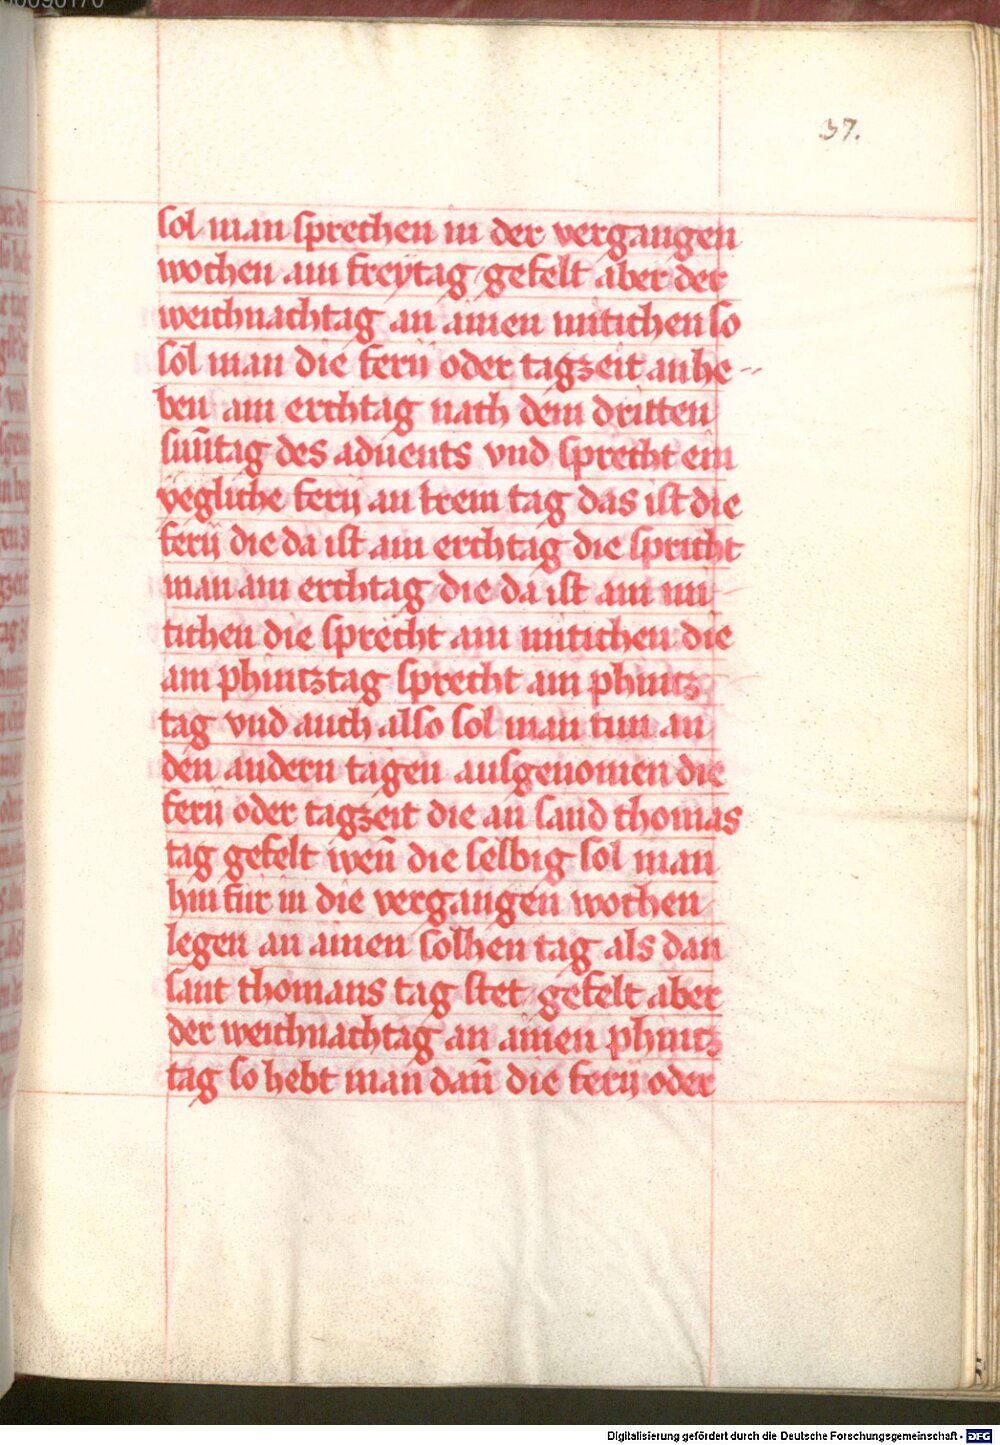 37.
sol man sprechen in der vergangen
wochen am freytag gefelt aber der
weichnachtag an ainen mitichen so
sol man die ferij oder tagzeit anhe-
ben am erchtag nach dem dritten
suntag des aduents vnd sprecht ein
yegliche ferij an irem tag das ist die
ferij die da ist am erchtag die spricht
man am erchtag die da ist am mi
tichen die sprecht am mitichen die
am phintztag sprecht am phintz
tag vnd auch also sol man tun an
den andern tagen ausgenomen die
ferij oder tagzeit die an sand thomas
tag gefelt wen̄ die selbig sol man
hin für in die vergangen wochen
legen an ainen solhen tag als dan
sant thomans tag stet gefelt aber
der weichnachtag an ainen phintz
tag so hebt man dan̄ die ferij oder
Digitalisierung gefördert durch die Deutsche Forschungsgemeinschaft - DFG